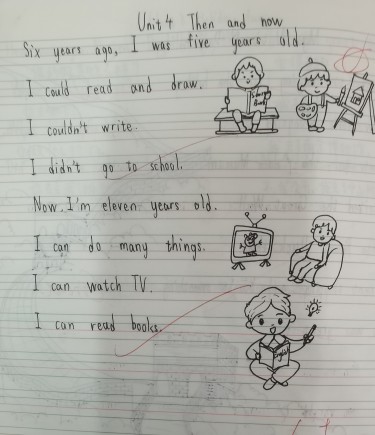 Unit 4 Then and now
Six years ago, I was five years old.
I could read and draw.
Story Book
I couldn't write.
I didn't go to school.
Now. I'm eleven years old.
I can do many things.
I can watch TV.
I can read books.
English